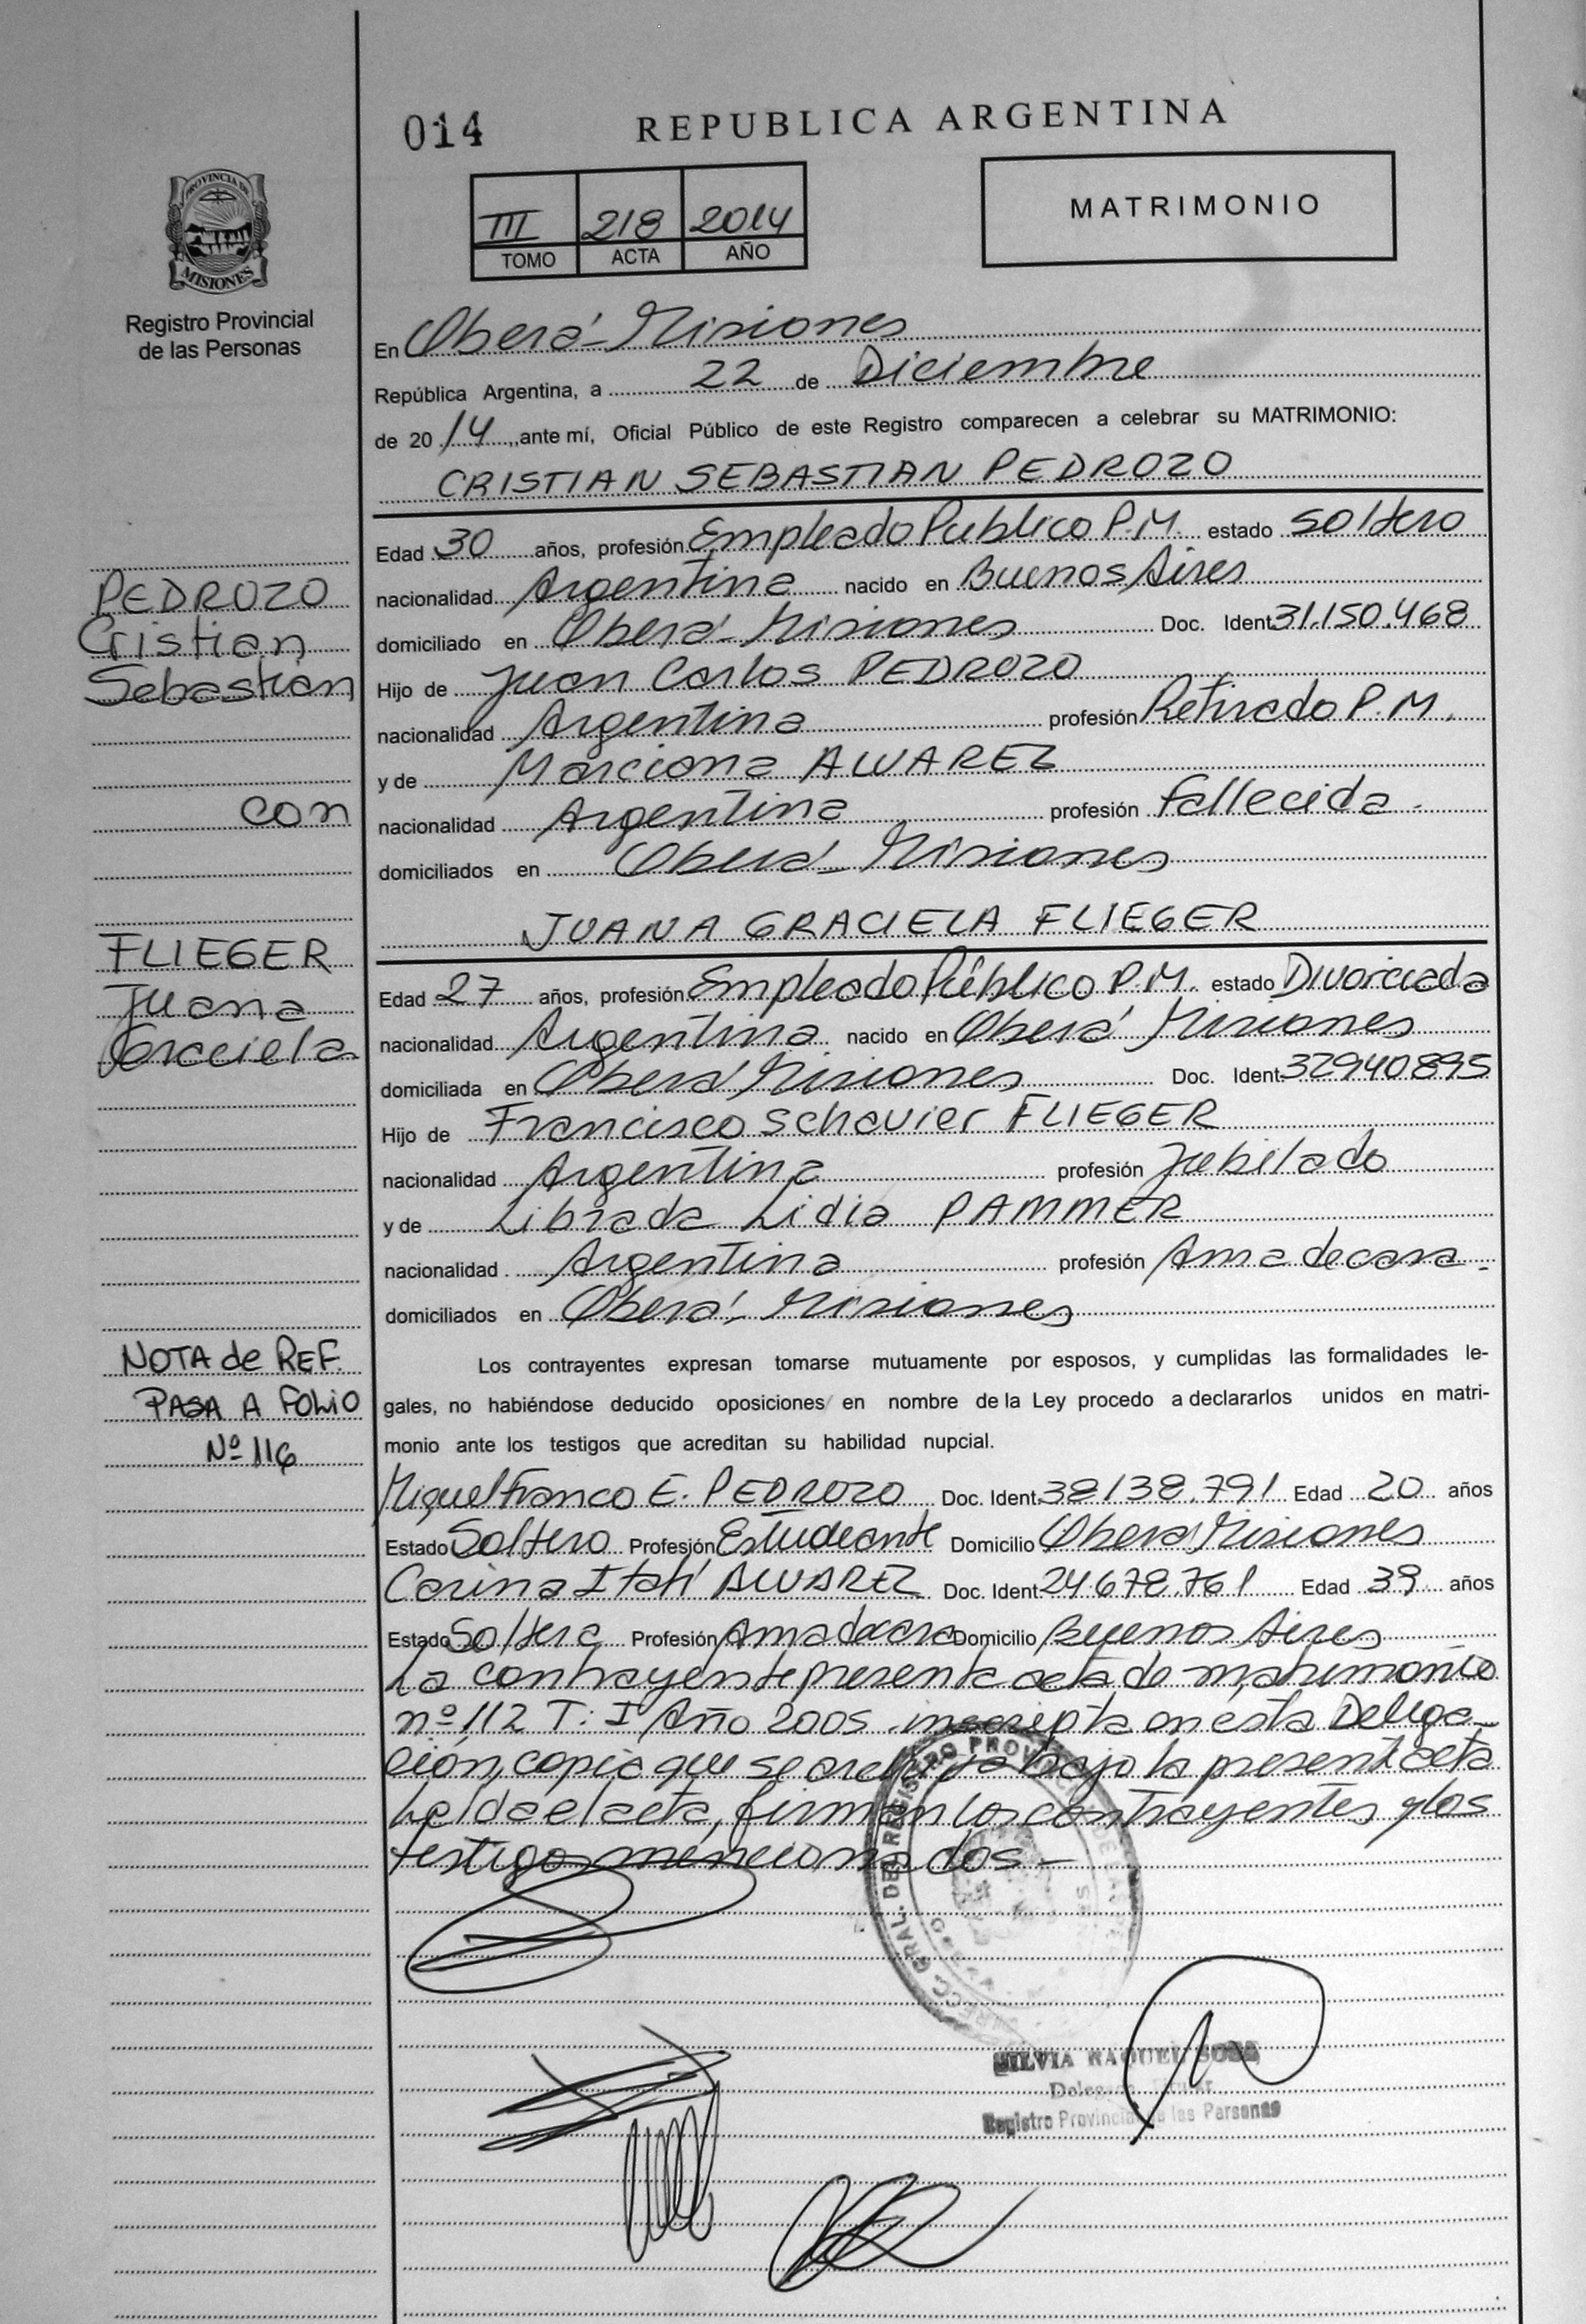 014
REPUBLICA ARGENTINA
PROVINCIA DE
MISIONES
III 218 2014
TOMO ACTA AÑO
MATRIMONIO
Registro Provincial
de las Personas
En Oberá - Misiones
República Argentina, a 22 de Diciembre
de 20 14 , ante mí, Oficial Público de este Registro comparecen a celebrar su MATRIMONIO:
CRISTIAN SEBASTIAN PEDROZO
Edad 30 años, profesión Empleado Publico P.M. estado soltero
PEDROZO
Cristian
Sebastian
nacionalidad Argentina nacido en Buenos Aires
domiciliado en Oberá - Misiones Doc. Ident. 31.150.468
Hijo de Juan Carlos PEDROZO
nacionalidad Argentina profesión Retirado P.M.
y de Marciana ALVAREZ
con
nacionalidad Argentina profesión fallecida -
domiciliados en Oberá - Misiones
JUANA GRACIELA FLIEGER
FLIEGER
Juana
Graciela
Edad 27 años, profesión Empleado Público P.M. estado Divorciada
nacionalidad Argentina nacido en Oberá Misiones
domiciliada en Oberá Misiones Doc. Ident. 32940895
Hijo de Francisco Schavier FLIEGER
nacionalidad Argentina profesión Jubilado
y de Librada Lidia PAMMER
nacionalidad Argentina profesión Ama de casa -
domiciliados en Oberá - Misiones
NOTA de REF.
PASA A FOLIO
Nº 116
Los contrayentes expresan tomarse mutuamente por esposos, y cumplidas las formalidades le-
gales, no habiéndose deducido oposiciones en nombre de la Ley procedo a declararlos unidos en matri-
monio ante los testigos que acreditan su habilidad nupcial.
Miguel Franco E. PEDROZO Doc. Ident. 38138.791 Edad 20 años
Estado Soltero Profesión Estudiante Domicilio Oberá Misiones
Carina Itatí ALVAREZ Doc. Ident. 24.678.761 Edad 39 años
Estado Soltera Profesión Ama de casa Domicilio Buenos Aires
La contrayente presenta acta de matrimonio
nº 112 T: I Año 2005 inscripta en esta Delega-
ción, copia que se archiva bajo la presente acta
Leída el acta, firman los contrayentes y los
testigos mencionados -
GRAL. DEL REGISTRO PROV
SILVIA RAQUEL SOSA
Delegada Titular
Registro Provincial de las Personas